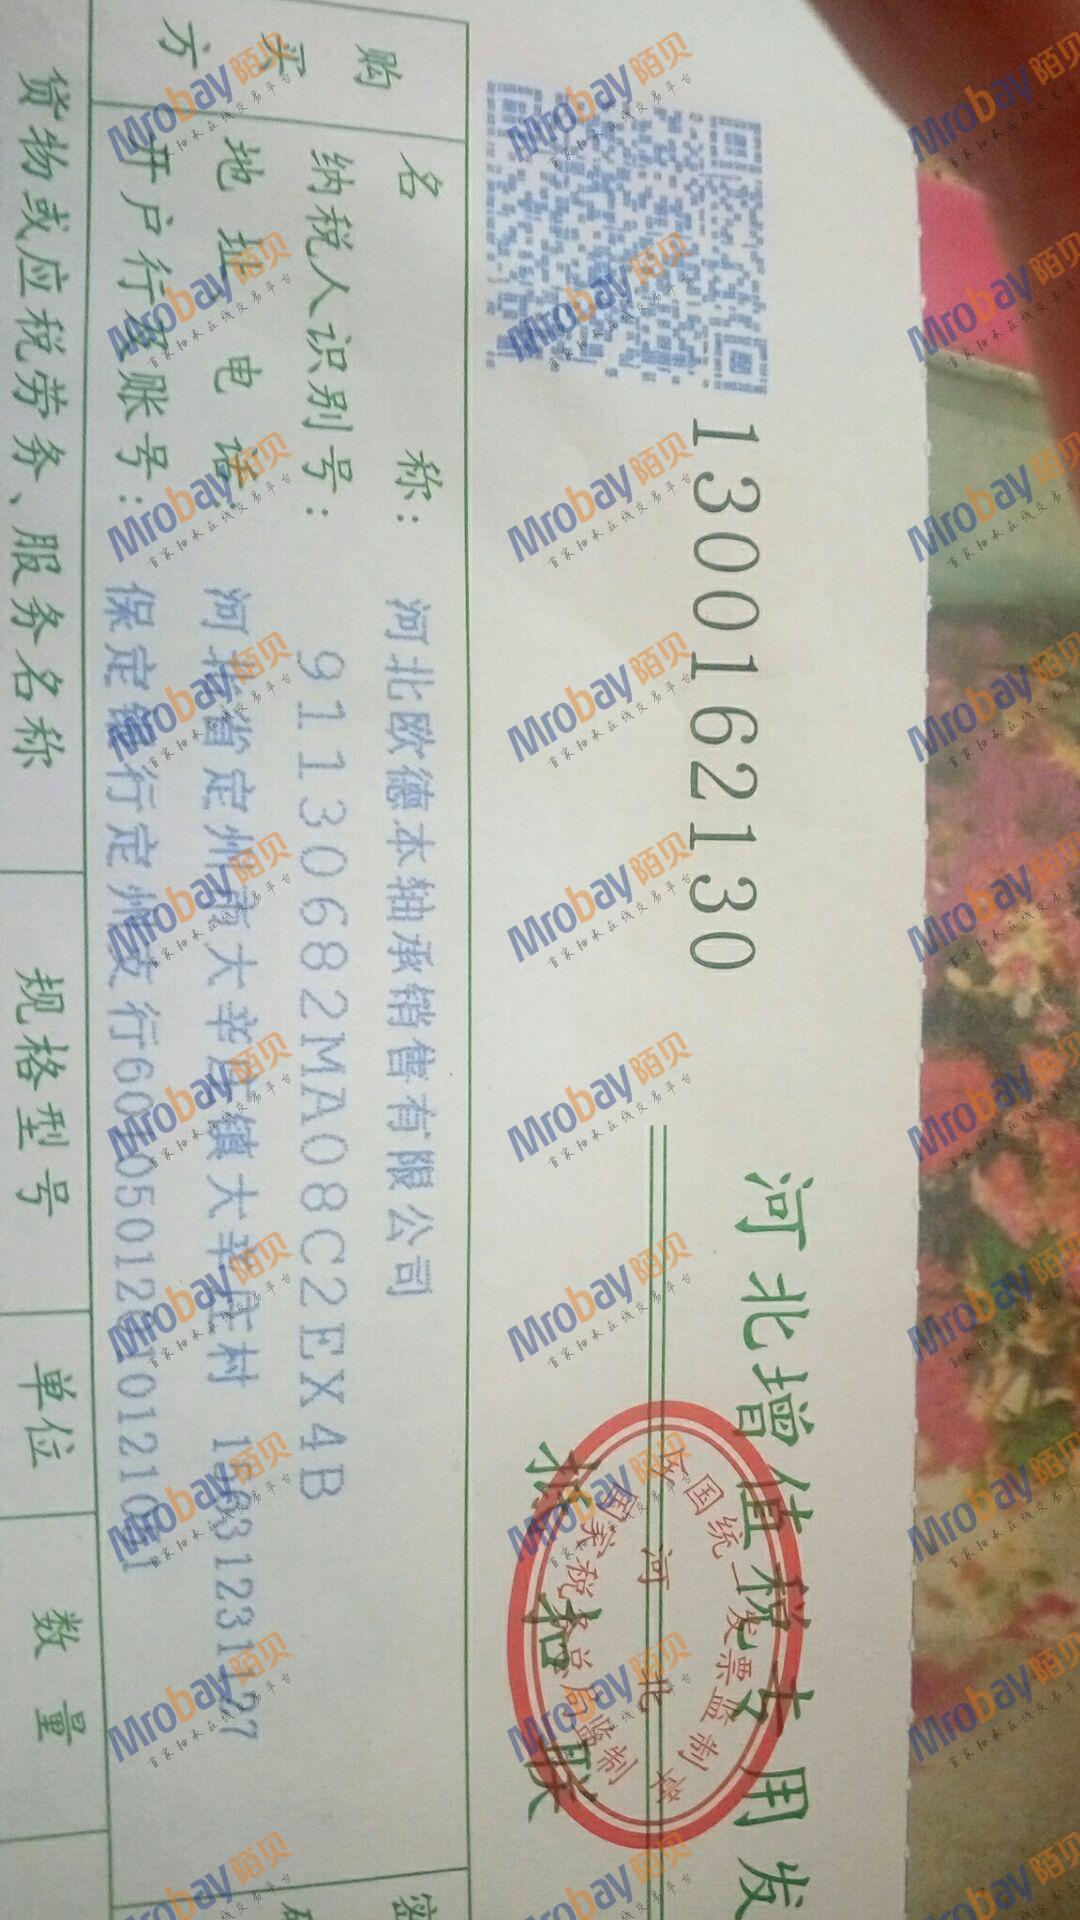 1300162130
河北增值税专用发
抵扣联
全国统一发票监制章
河北
国家税务总局监制
购买方
名 称：河北欧德本轴承销售有限公司
纳税人识别号：91130682MA08C2EX4B
地址、电话：河北省定州市大辛庄镇大辛庄村
开户行及账号：保定银行定州支行
密
货物或应税劳务、服务名称 规格型号 单位 数量
Mrobay陌贝
首家轴承在线交易平台